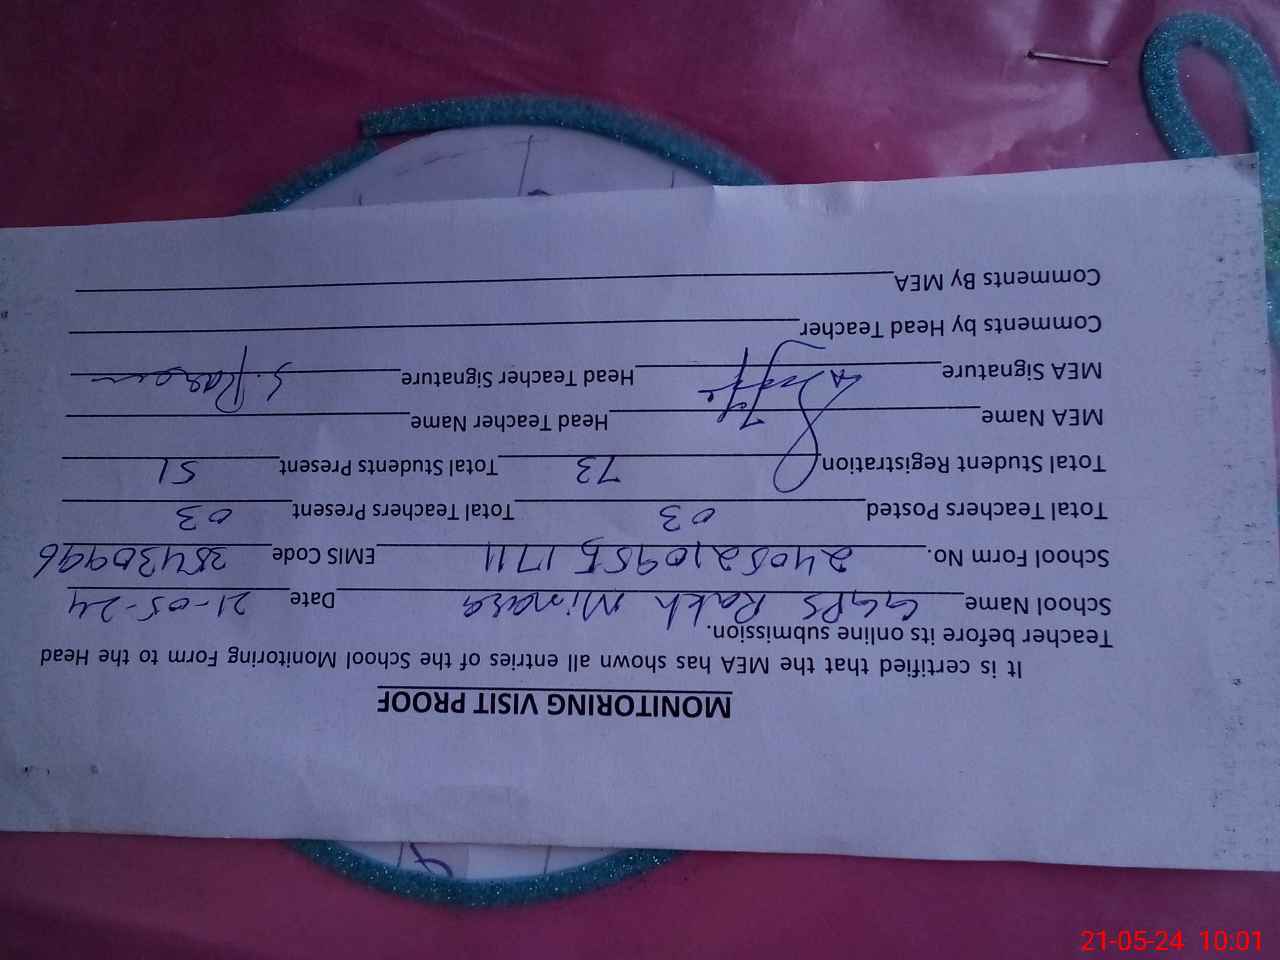 MONITORING VISIT PROOF
It is certified that the MEA has shown all entries of the School Monitoring Form to the Head
Teacher before its online submission.
School Name GGPS Rakh Minara Date 21-05-24
School Form No. 2405210955 1711 EMIS Code 38430996
Total Teachers Posted 03 Total Teachers Present 03
Total Student Registration 73 Total Students Present 51
MEA Name Head Teacher Name
MEA Signature Head Teacher Signature
Comments by Head Teacher
Comments By MEA
21-05-24 10:01